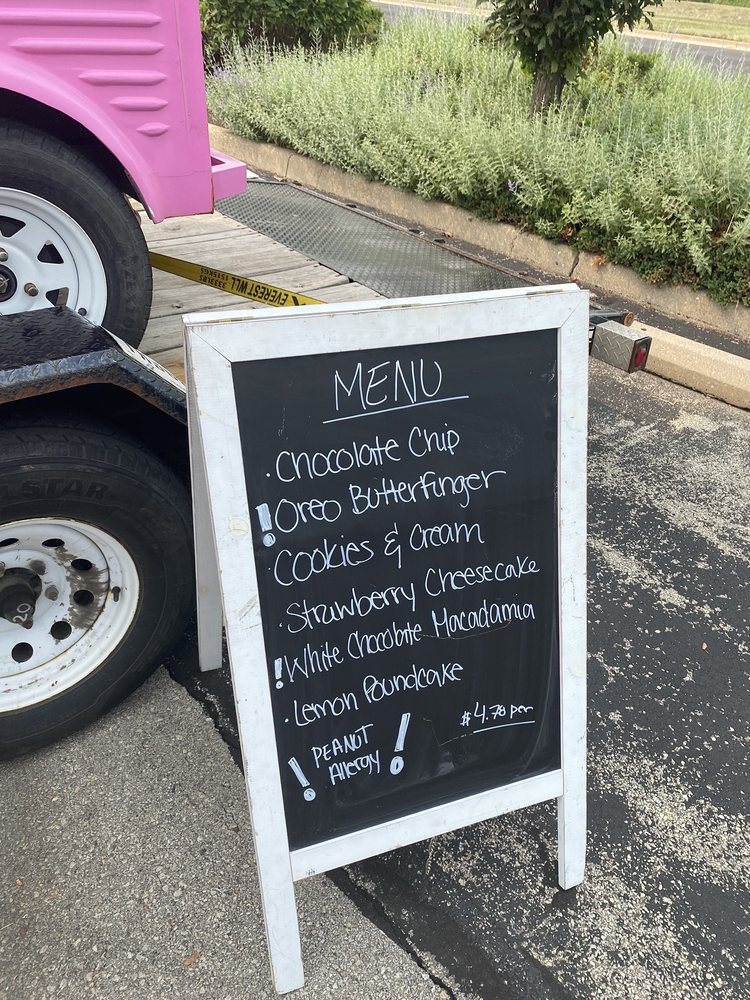 MENU
· Chocolate Chip
! Oreo Butterfinger
Cookies & Cream
· Strawberry Cheesecake
! White Chocolate Macadamia
· Lemon Poundcake
$4.78 per
! PEANUT
Allergy !
EVEREST WLL
3333LBS 1515KGS
STAR
20